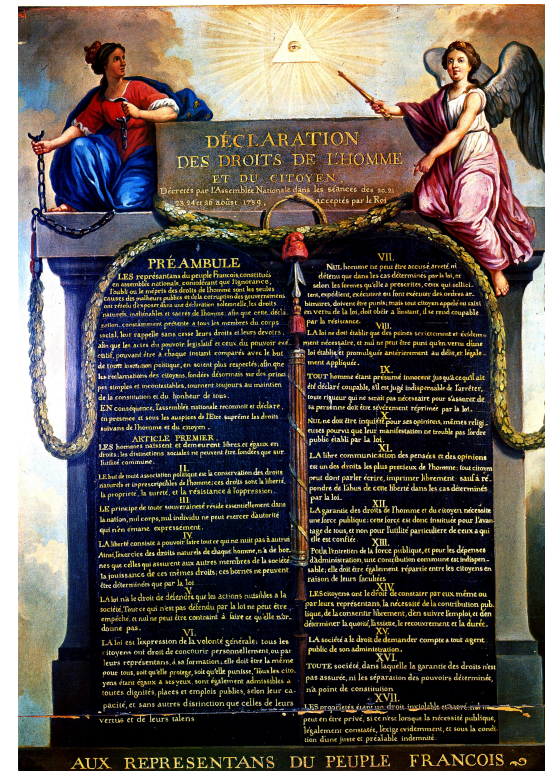 DÉCLARATION
DES DROITS DE L'HOMME
ET DU CITOYEN.
Décretés par l'Assemblée Nationale dans les séances des 20, 21
23, 24 et 26 août 1789, acceptés par le Roi
PRÉAMBULE
LES représentans du peuple François, constitués
en assemblée nationale, considérant que l'ignorance,
l'oubli ou le mépris des droits de l'homme sont les seules
causes des malheurs publics et de la corruption des gouvernemens
ont résolu d'exposer dans une déclaration solemnelle, les droits
naturels, inaliénables et sacrés de l'homme; afin que cette décla
ration, constamment présente a tous les membres du corps
social, leur rappelle sans cesse leurs droits et leurs devoirs;
afin que les actes du pouvoir législatif et ceux du pouvoir exé-
cutif, pouvant être à chaque instant comparés avec le but
de toute institution politique, en soient plus respectés; afin que
les réclamations des citoyens, fondées désormais sur des princi
pes simples et incontestables, tournent toujours au maintien
de la constitution et du bonheur de tous.
EN conséquence, l'assemblée nationale reconnoit et déclare,
en presence et sous les auspices de l'Etre suprême les droits
suivans de l'homme et du citoyen.
ARTICLE PREMIER.
LES hommes naissent et demeurent libres et égaux en
droits; les distinctions sociales ne peuvent être fondées que sur
l'utilité commune.
II.
LE but de toute association politique est la conservation des droits
naturels et inprescriptibles de l'homme; ces droits sont la liberté,
la proprieté, la sureté, et la résistance à l'oppression.
III.
LE principe de toute souveraineté réside essentiellement dans
la nation, nul corps, nul individu ne peut exercer d'autorité
qui n'en émane expressement.
IV.
LA liberté consiste a pouvoir faire tout ce qui ne nuit pas à autrui
Ainsi, l'exercice des droits naturels de chaque homme, n'a de bor-
nes que celles qui assurent aux autres membres de la société
la jouissance de ces mêmes droits; ces bornes ne peuvent
être déterminées que par la loi
V.
LA loi n'a le droit de défendre que les actions nuisibles a la
société. Tout ce qui n'est pas défendu par la loi ne peut être
empêché, et nul ne peut être contraint à faire ce qu'elle n'or-
donne pas.
VI.
LA loi est l'expression de la volonté générale; tous les
citoyens ont droit de concourir personnellement, ou par
leurs représentans, à sa formation; elle doit être la même
pour tous, soit qu'elle protege, soit qu'elle punisse, Tous les cito
yens étant égaux à ses yeux, sont également admissibles a
toutes dignités, places et emplois publics, selon leur ca-
pacité, et sans autres distinction que celles de leurs
vertus et de leurs talens
VII.
NUL homme ne peut être accusé, arreté ni
détenu que dans les cas déterminés par la loi, et
selon les formes qu'elle a prescrites, ceux qui sollici-
tent, expédient, exécutent ou font exécuter des ordres ar-
bitraires, doivent être punis; mais tout citoyen appelé ou saisi
en vertu de la loi, doit obéir a l'instant, il se rend coupable
par la résistance.
VIII.
LA loi ne doit établir que des peines strictement et évidem-
ment nécessaire, et nul ne peut être puni qu'en vertu d'une
loi établie et promulguée antérieurement au délit, et légale-
ment appliquée.
IX.
TOUT homme étant présumé innocent jusqu'a ce qu'il ait
été déclaré coupable, s'il est jugé indispensable de l'arrêter,
toute rigueur qui ne serait pas nécessaire pour s'assurer de
sa personne doit être sévérement réprimée par la loi.
X.
NUL ne doit être inquiété pour ses opinions, mêmes religi-
euses pourvu que leur manifestation ne trouble pas l'ordre
public établi par la loi.
XI.
LA libre communication des pensées et des opinions
est un des droits les plus precieux de l'homme: tout citoyen
peut donc parler écrire, imprimer librement: sauf à ré-
pondre de l'abus de cette liberté dans les cas déterminés
par la loi.
XII.
LA garantie des droits de l'homme et du citoyen nécessite
une force publique; cette force est donc instituée pour l'avan-
tage de tous, et non pour l'utilité particuliere de ceux a qui
elle est confiée.
XIII.
Pour l'entretien de la force publique, et pour les dépenses
d'administration, une contribution commune est indispen-
sable; elle doit être également répartie entre les citoyens en
raison de leurs facultées
XIV.
LES citoyens ont le droit de constater par eux même ou
par leurs représentans, la nécessité de la contribution pub-
lique, de la consentir librement, d'en suivre l'emploi, et d'en
déterminer la quotité, l'assiette, le recouvrement et la durée.
XV.
LA société a le droit de demander compte a tout agent
public de son administration.
XVI.
TOUTE société, dans laquelle la garantie des droits n'est
pas assurée, ni les séparation des pouvoirs déterminée,
n'a point de constitution
XVII.
LES proprietés étant un droit inviolable et sacré, nul ne
peut en être privé, si ce n'est lorsque la nécessité publique,
légalement constatée, l'exige evidemment, et sous la condi-
tion d'une juste et préalable indemnité.
AUX REPRESENTANS DU PEUPLE FRANCOIS